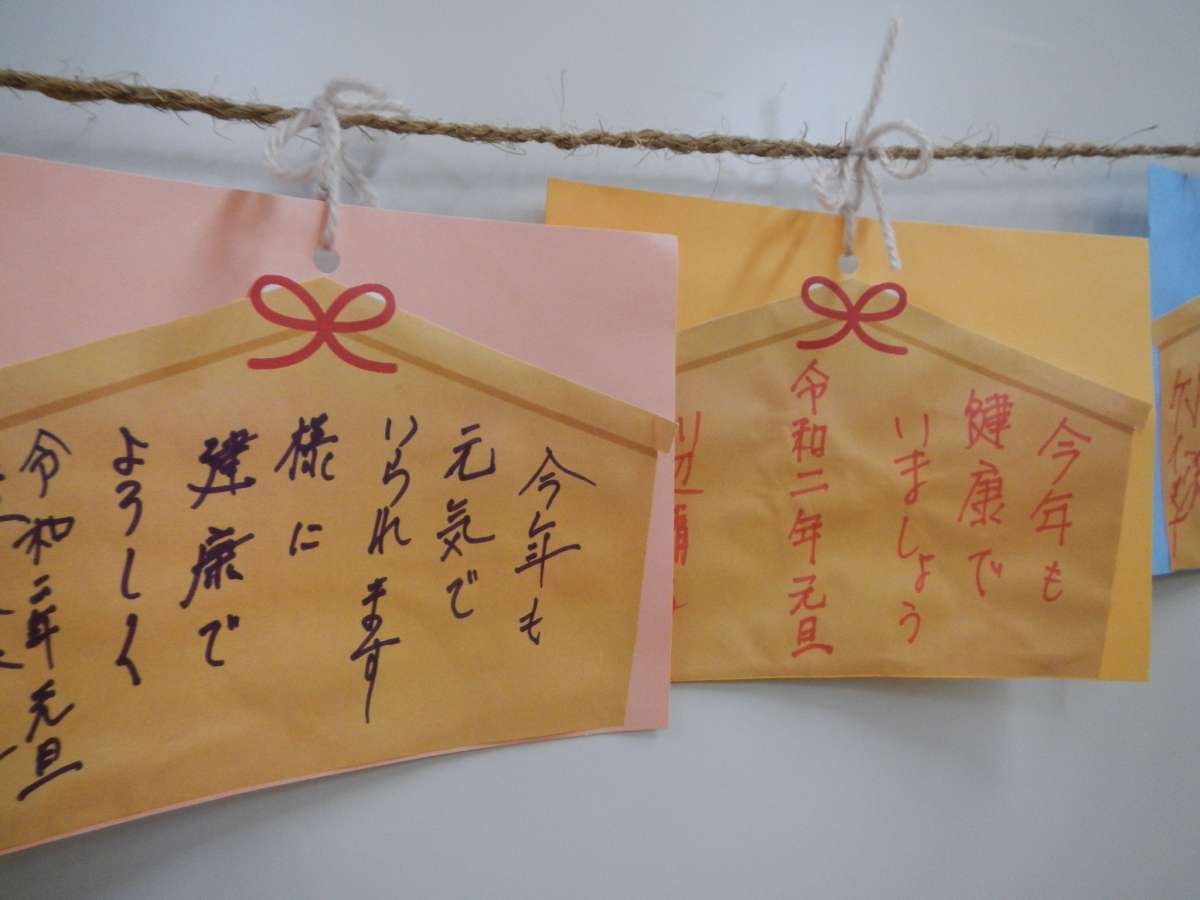 今年も
元気で
いられます
様に
健康で
よろしく
令和二年元旦
今年も
健康で
いましょう
令和二年元旦